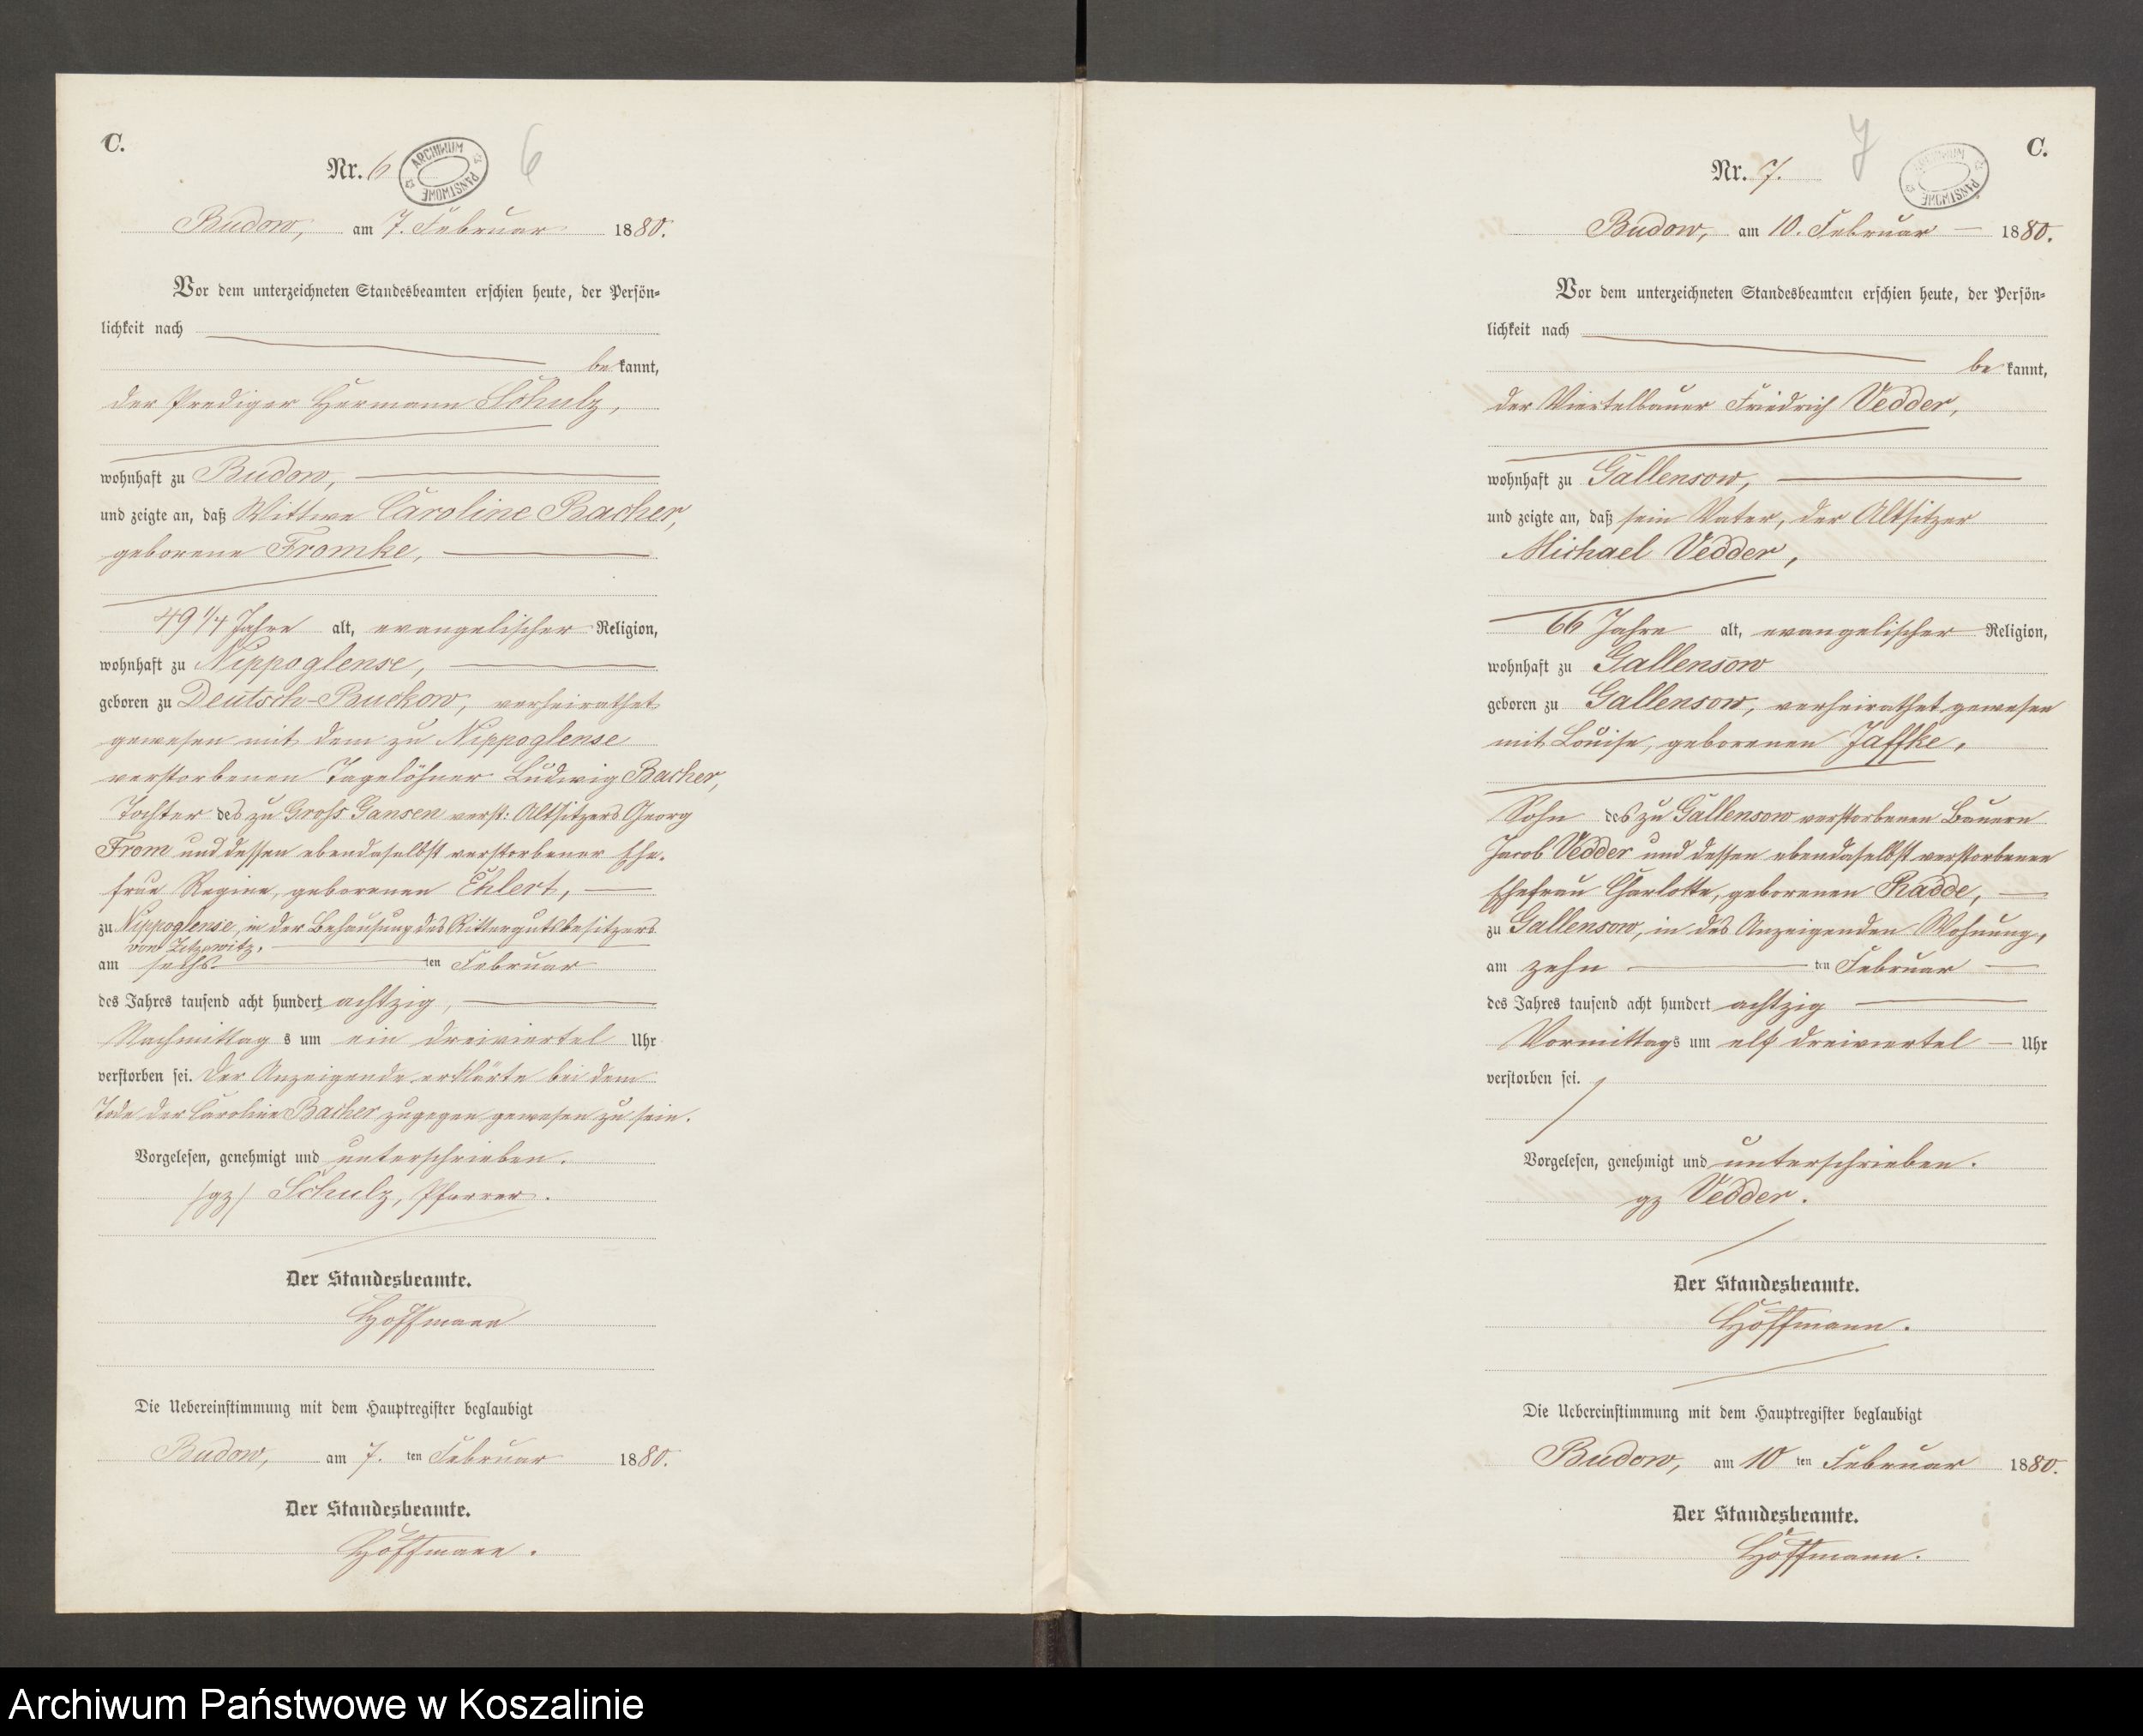 C.
Nr. 6
ARCHIWUM PAŃSTWOWE
6
Budow, am 7. Februar 1880.
Vor dem unterzeichneten Standesbeamten erschien heute, der Persön-
lichkeit nach
be kannt,
der Prediger Hermann Schulz,
wohnhaft zu Budow,
und zeigte an, daß Wittwe Caroline Bacher,
geborene Fromke,
49 1/4 Jahre alt, evangelischer Religion,
wohnhaft zu Nippoglense,
geboren zu Deutsch-Buckow, verheirathet
gewesen mit dem zu Nippoglense
verstorbenen Tagelöhner Ludwig Bacher,
Tochter des zu Groß Gansen verst: Altsitzers Georg
From und dessen ebendaselbst verstorbener Ehe-
frau Regine, geborenen Ehlert,
zu Nippoglense, in der Behausung des Rittergutsbesitzers
von Zitzewitz,
am sechs ten Februar
des Jahres tausend acht hundert achtzig,
Nachmittag s um ein dreiviertel Uhr
verstorben sei. Der Anzeigende erklärte bei dem
Tode der Caroline Bacher zugegen gewesen zu sein.
Vorgelesen, genehmigt und unterschrieben.
/gz/ Schulz, Pfarrer.
Der Standesbeamte.
Hoffmann
Die Uebereinstimmung mit dem Hauptregister beglaubigt
Budow, am 7. ten Februar 1880.
Der Standesbeamte.
Hoffmann.
C.
Nr. 7.
7
ARCHIWUM PAŃSTWOWE
Budow, am 10. Februar 1880.
Vor dem unterzeichneten Standesbeamten erschien heute, der Persön-
lichkeit nach
be kannt,
der Viertelbauer Friedrich Vedder,
wohnhaft zu Gallensow,
und zeigte an, daß sein Vater, der Altsitzer
Michael Vedder,
66 Jahre alt, evangelischer Religion,
wohnhaft zu Gallensow
geboren zu Gallensow, verheirathet gewesen
mit Louise, geborenen Jaffke,
Sohn des zu Gallensow verstorbenen Bauern
Jacob Vedder und dessen ebendaselbst verstorbenen
Ehefrau Charlotte, geborenen Radde,
zu Gallensow, in des Anzeigenden Wohnung,
am zehn ten Februar
des Jahres tausend acht hundert achtzig
Vormittags um elf dreiviertel Uhr
verstorben sei.
Vorgelesen, genehmigt und unterschrieben.
gz Vedder.
Der Standesbeamte.
Hoffmann.
Die Uebereinstimmung mit dem Hauptregister beglaubigt
Budow, am 10 ten Februar 1880.
Der Standesbeamte.
Hoffmann.
Archiwum Państwowe w Koszalinie